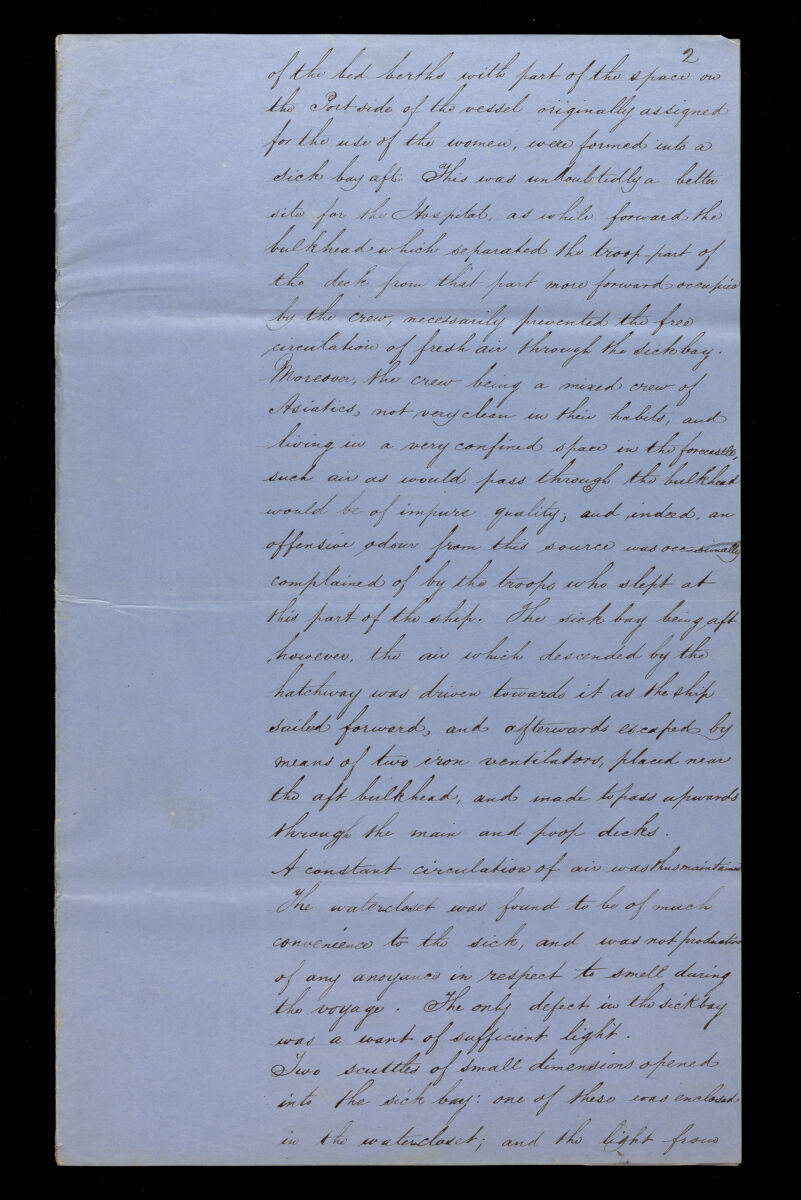 2
of the bed berths with part of the space on
the Port side of the vessel originally assigned
for the use of the women, were formed into a
sick bay aft. This was undoubtedly a better
site for the Hospital, as while forward the
bulkhead which separated the troop-part of
the deck from that part more forward occupied
by the crew, necessarily prevented the free
circulation of fresh air through the sick bay.
Moreover, the crew being a mixed crew of
Asiatics, not very clean in their habits, and
living in a very confined space in the forecastle,
such air as would pass through the bulkhead
would be of impure quality; and indeed, an
offensive odour from this source was occasionally
complained of by the troops who slept at
this part of the ship. The sick bay being aft
however, the air which descended by the
hatchway was driven towards it as the ship
sailed forward, and afterwards escaped by
means of two iron ventilators, placed near
the aft bulkhead, and made to pass upwards
through the main and poop decks.
A constant circulation of air was thus maintained
The watercloset was found to be of much
convenience to the sick, and was not productive
of any anoyance in respect to smell during
the voyage. The only defect in the sick bay
was a want of sufficient light.
Two scuttles of small dimensions opened
into the sick bay: one of these was enclosed
in the watercloset; and the light from